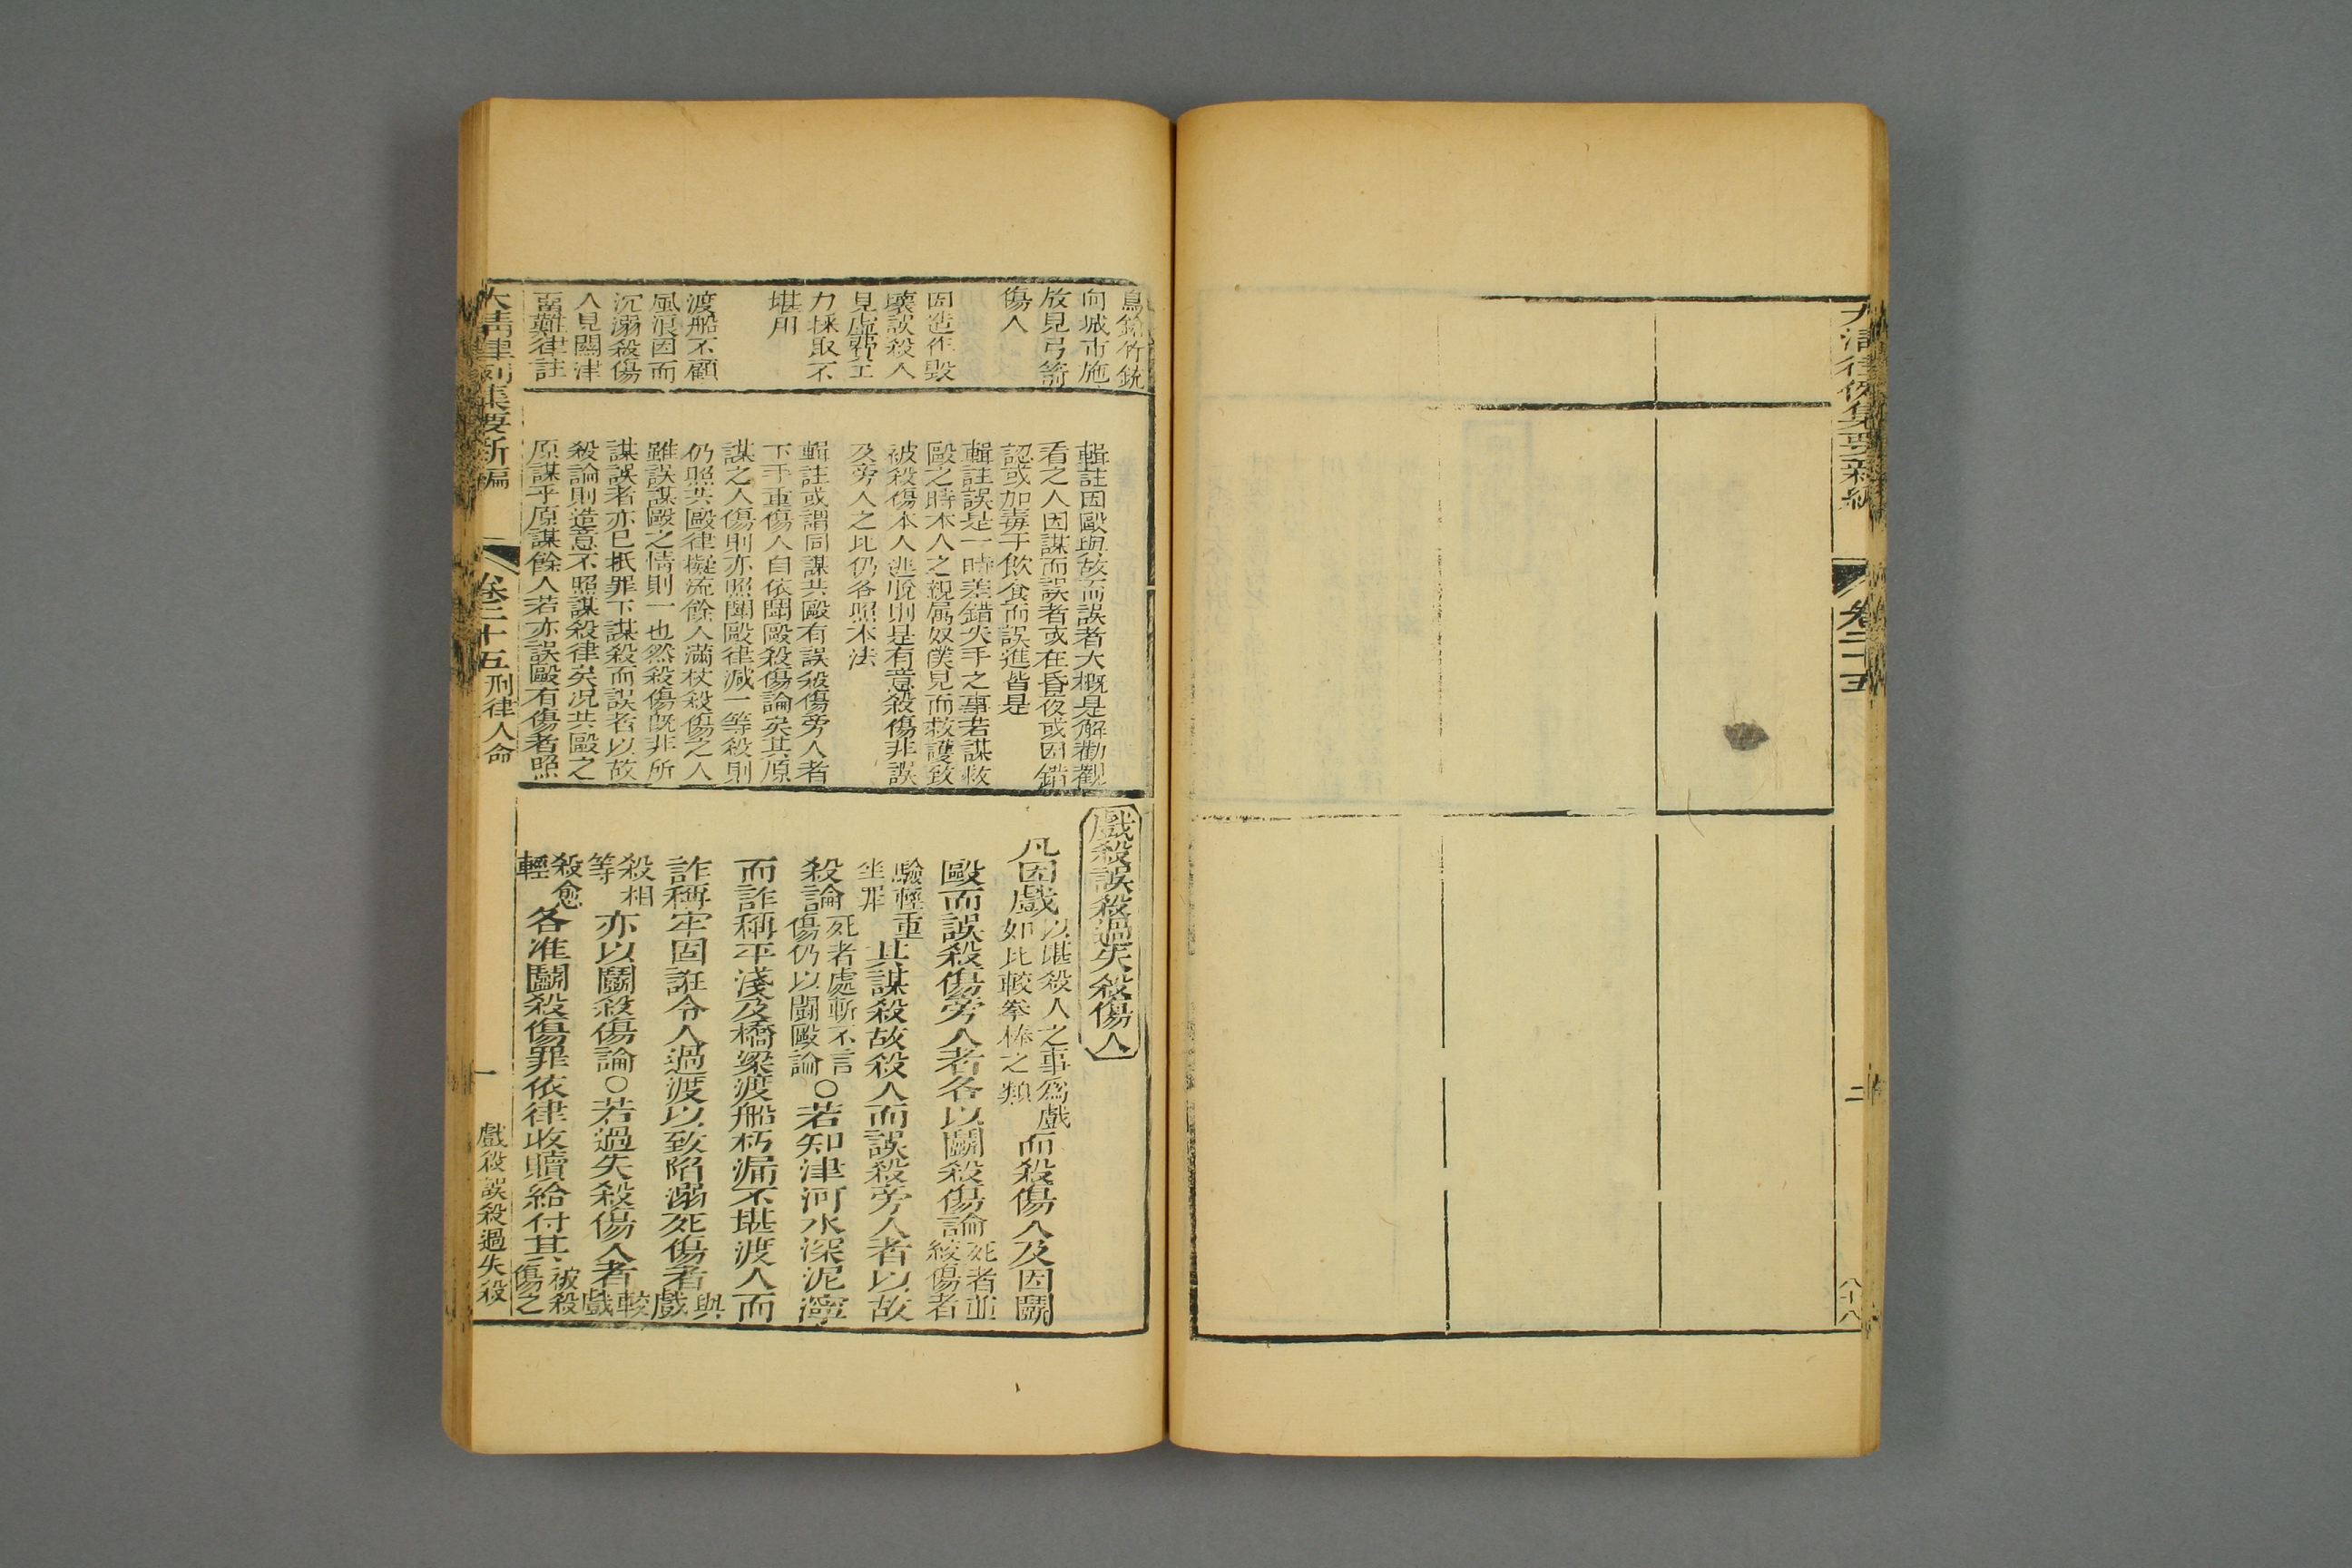 大清律例集要新編
卷二十五
二
鳥鎗竹銃
向城市施
放見弓箭
傷人
因造作毀
壞誤殺人
見虛費工
力採取不
堪用
渡船不顧
風浪因而
沉溺殺傷
人見關津
留難律註
輯註因毆與故而誤者大概是解勸觀
看之人因謀而誤者或在昏夜或因錯
認或加毒于飲食而誤進皆是
輯註誤是一時差錯失手之事若謀故
毆之時本人之親屬奴僕見而救護致
被殺傷本人逃脫則是有意殺傷非誤
及旁人之比仍各照本法
輯註或謂同謀共毆有誤殺傷旁人者
下手重傷人自依鬬毆殺傷論矣其原
謀之人傷則亦照鬬毆律減一等殺則
仍照共毆律擬流餘人滿杖殺傷之人
雖誤謀毆之情則一也然殺傷既非所
謀誤者亦已抵罪下謀殺而誤者以故
殺論則造意不照謀殺律矣况共毆之
原謀乎原謀餘人若亦誤毆有傷者照
戲殺誤殺過失殺傷人
凡因戲以堪殺人之事爲戲如比較拳棒之類而殺傷人及因鬬
毆而誤殺傷旁人者各以鬬殺傷論死者並絞傷者
驗輕重坐罪其謀殺故殺人而誤殺旁人者以故
殺論死者處斬不言傷仍以鬬毆論〇若知津河水深泥濘
而詐稱平淺及橋梁渡船朽漏不堪渡人而
詐稱牢固誑令人過渡以致陷溺死傷者與戲
殺相等亦以鬬殺傷論〇若過失殺傷人者較戲
殺愈輕各准鬬殺傷罪依律收贖給付其被殺傷之
大清律例集要新編
卷二十五刑律人命
一
戲殺誤殺過失殺